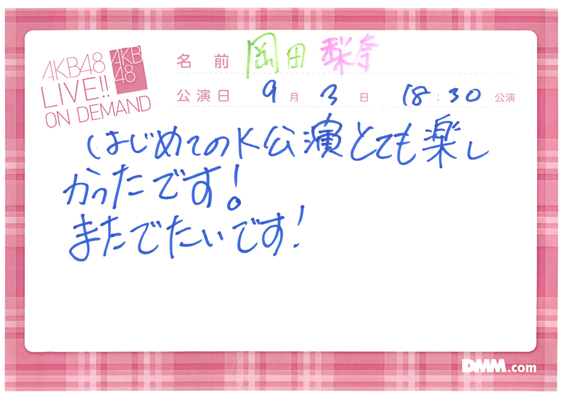 AKB48
LIVE!!
ON DEMAND
AKB
48
名前 岡田 梨奈
公演日 9月3日 18:30公演
はじめてのK公演とても楽し
かったです!
またでたいです!
DMM.com